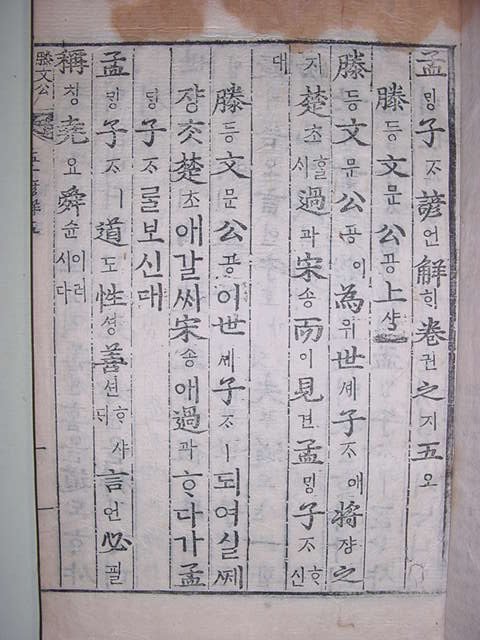 孟ᄆᆡᆼ子ᄌᆞ諺언解ᄒᆡ卷권之지五오
滕등文문公공上샹
滕등文문公공이為위世셰子ᄌᆞ애將쟝之
지楚초ᄒᆞᆯ시過과宋송而이見견孟ᄆᆡᆼ子ᄌᆞᄒᆞ신
대
滕등文문公공이世셰子ᄌᆞㅣ되여실ᄡᅦ
쟝ᄎᆞᆺ楚초애갈ᄊᆡ宋송애過과ᄒᆞ다가孟
ᄆᆡᆼ子ᄌᆞᄅᆞᆯ보신대
孟ᄆᆡᆼ子ᄌᆞㅣ道도性셩善션ᄒᆞ샤ᄃᆡ言언必필
稱칭堯요舜슌이러시다
滕文公